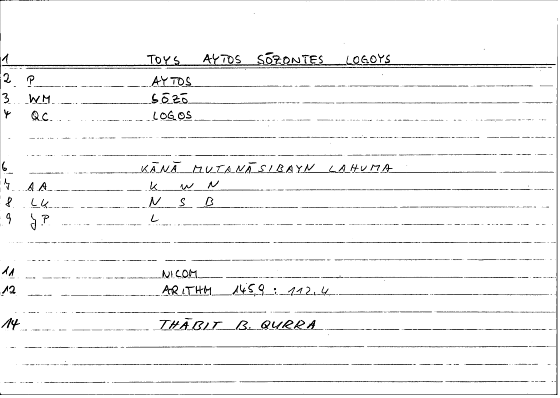 1 TOYS AYTOS SŌZONTES LOGOYS
2 P AYTOS
3 WM SŌZŌ
4 QC LOGOS
6 KĀNĀ MUTANĀSIBAYN LAHUMA
7 AA K W N
8 LU N S B
9 JP L
11 NICOM
12 ARITHM 145,9 : 112,4
14 THĀBIT B. QURRA